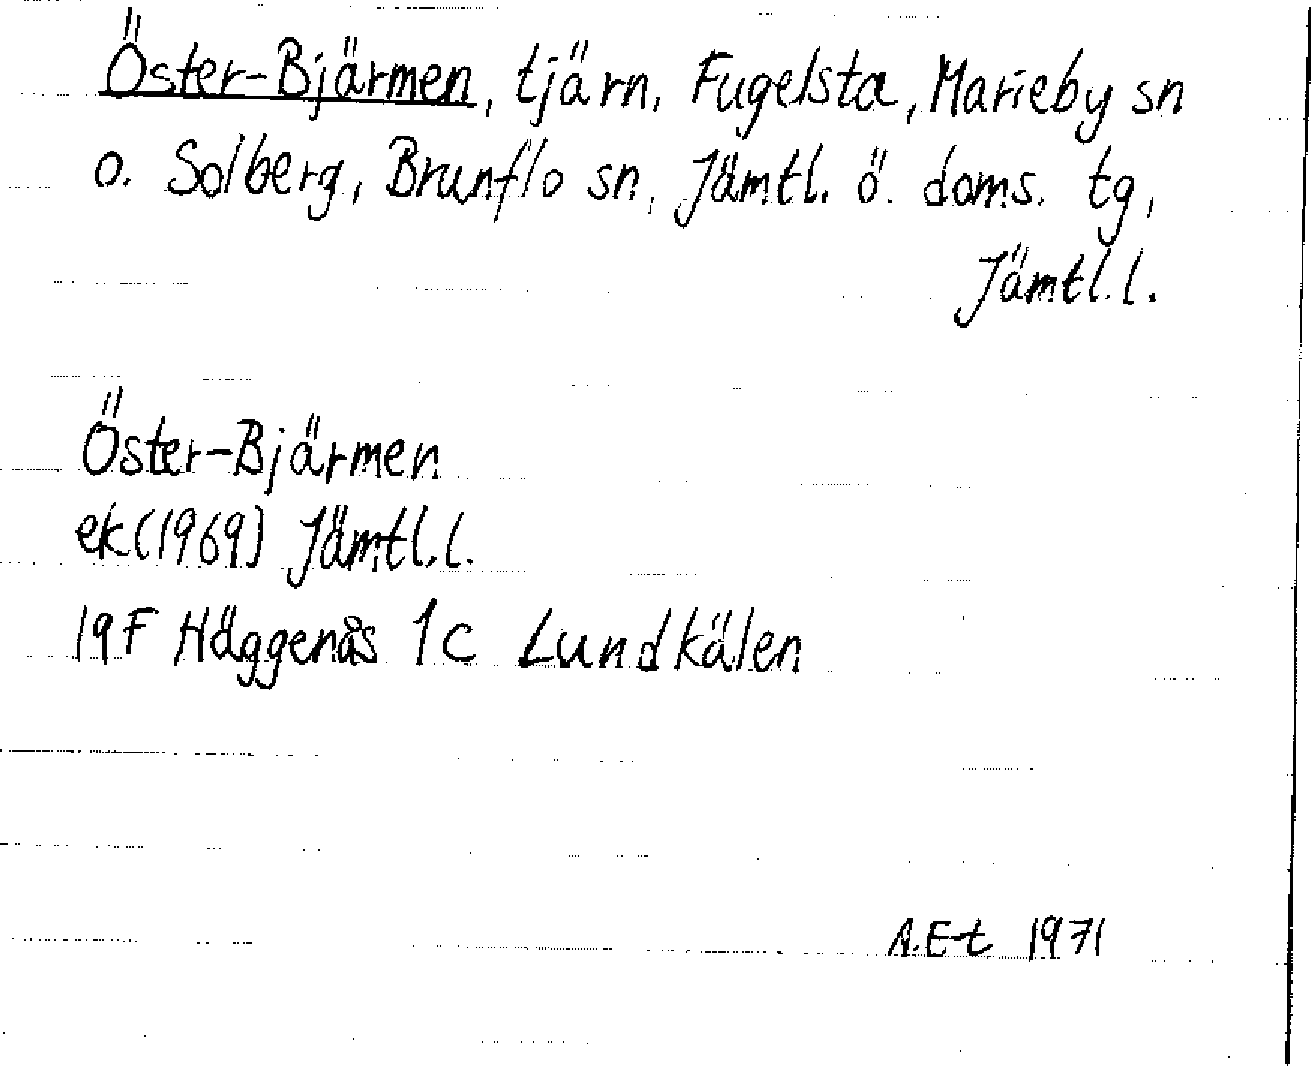 Öster-Bjärmen, tjärn, Fugelsta, Marieby sn
o. Solberg, Brunflo sn, Jämtl. ö. doms. tg,
Jämtl.l.
Öster-Bjärmen
ek(1969) Jämtl.l.
19F Häggenås 1c Lundkälen
A.E-t 1971